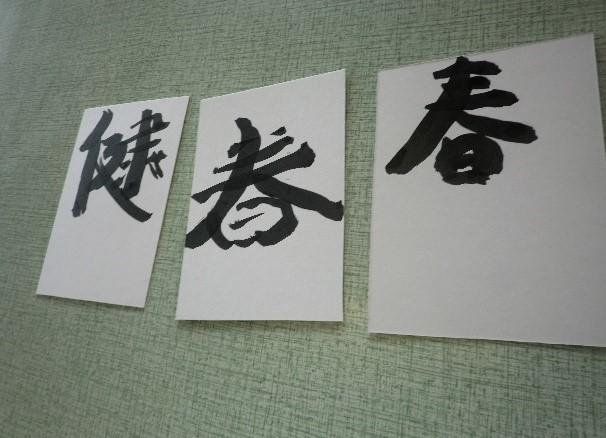 健
春
春